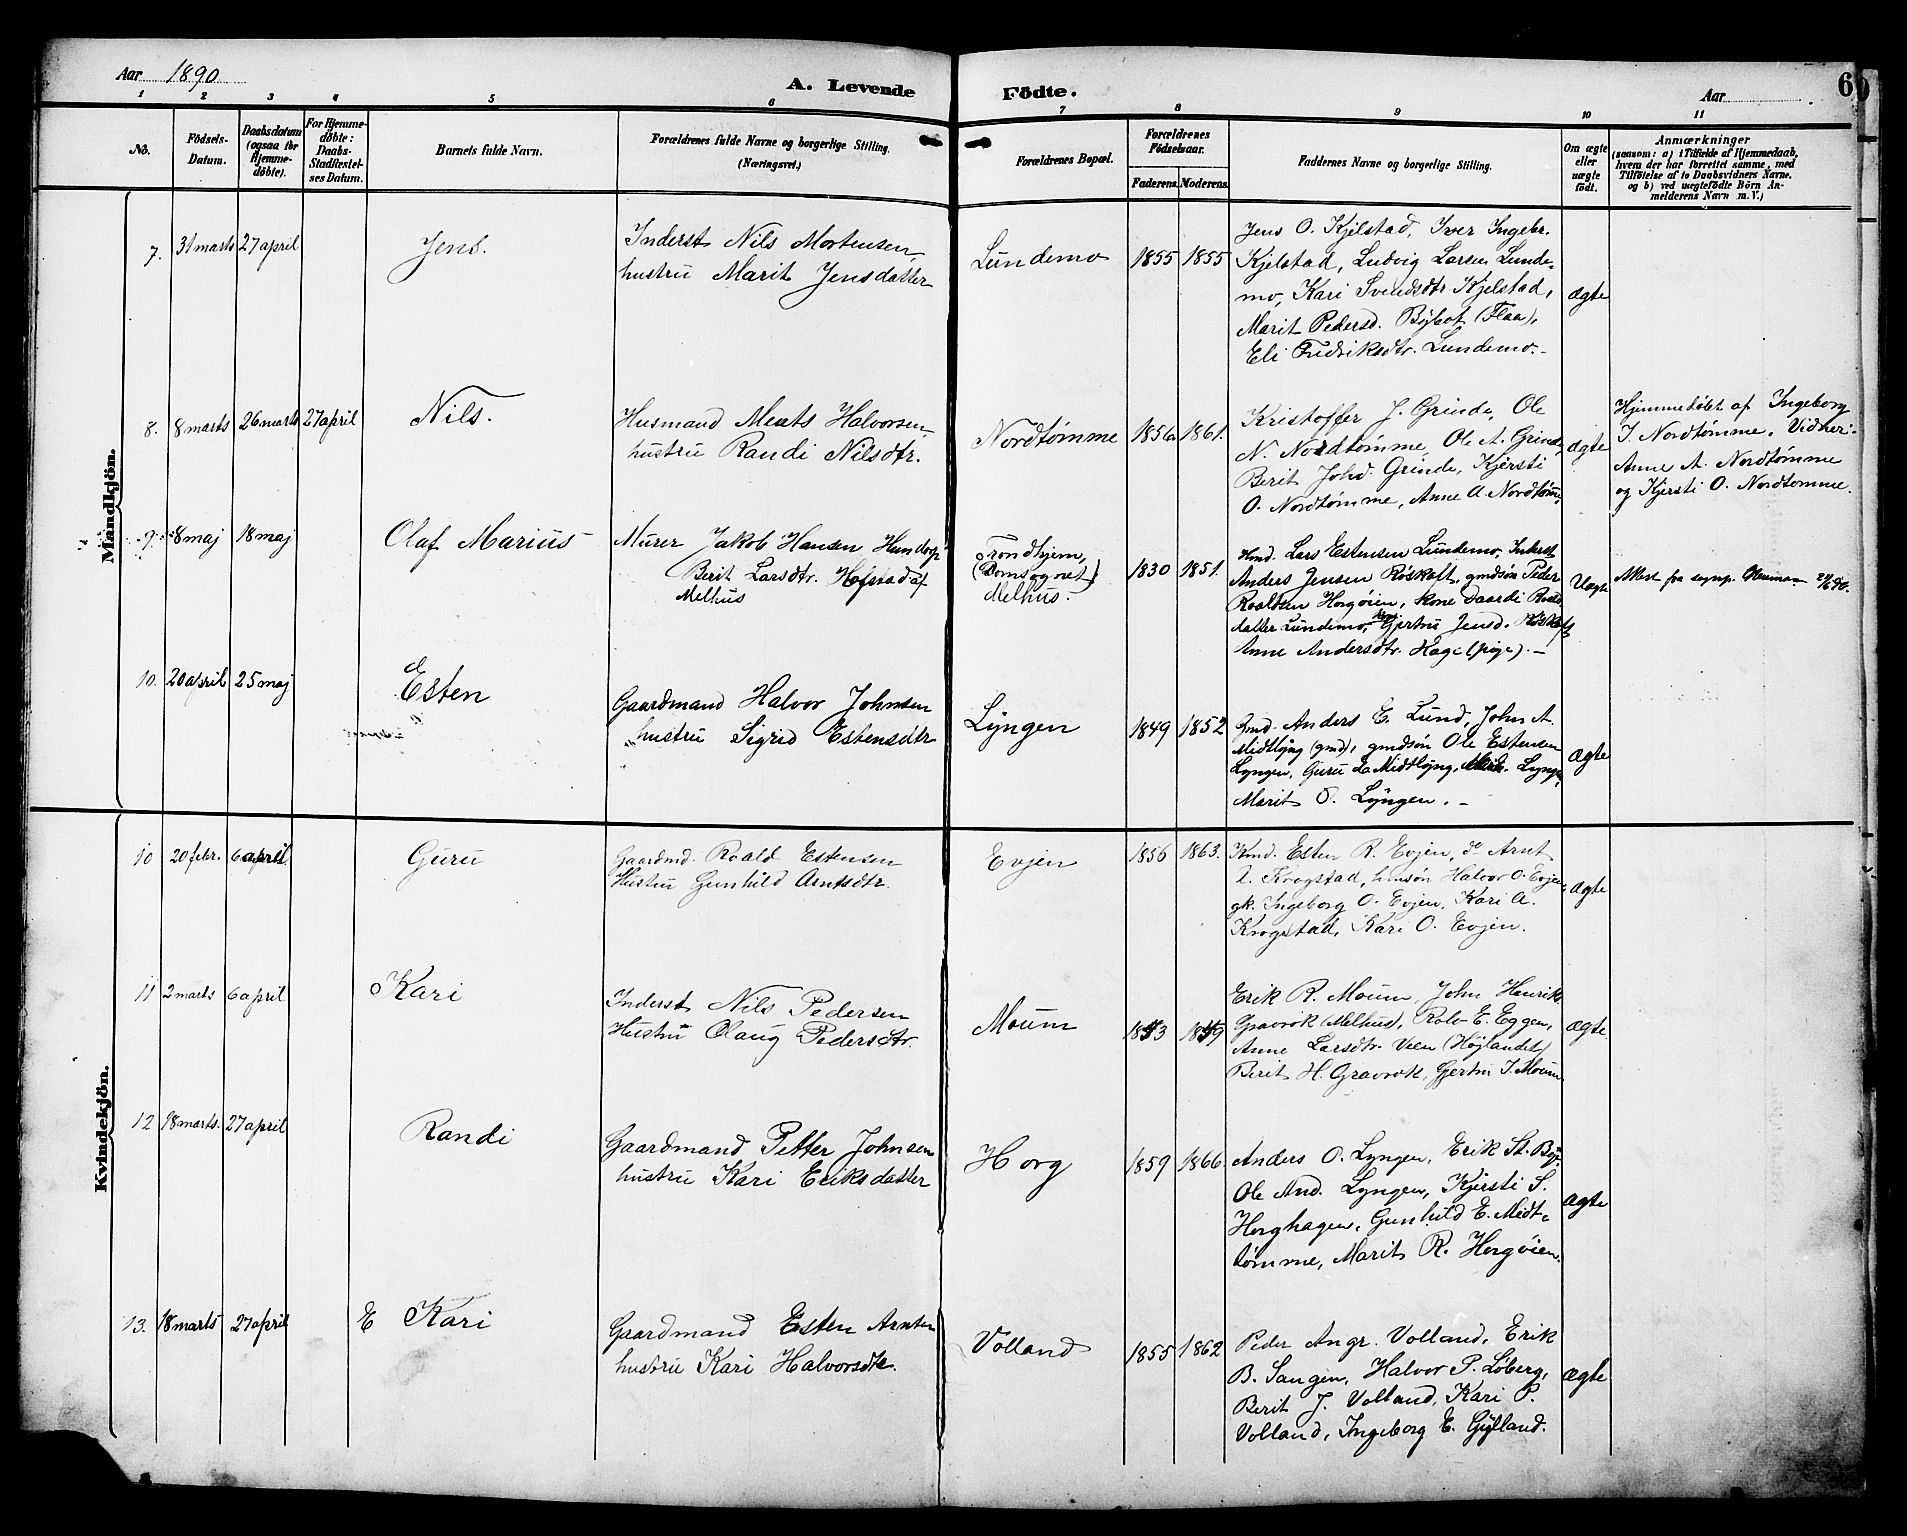 Aar 1890
A. Levende Födte.
Aar
6
1 2 3 4 5 6 7 8 9 10 11
No.
Födsels-Datum.
Daabsdatum (ogsaa for Hjemme-döbte).
For Hjemme-döbte: Daabs-Stadfæstel-ses Datum.
Barnets fulde Navn.
Forældrenes fulde Navne og borgerlige Stilling. (Næringsvei.)
Forældrenes Bopæl.
Forældrenes Födselsaar.
Faderens. Moderens.
Faddernes Navne og borgerlige Stilling.
Om ægte eller uægte födt.
Anmærkninger
(saasom: a) i Tilfælde af Hjemmedaab,
hvem der har forrettet samme, med
Tilföielse af to Daabsvidners Navne,
og b) ved uægtefödte Börn An-
melderens Navn m. V.)
Mandkjön.
7. 31 marts 27 april Jens. Inderst Nils Mortensen, hustru Marit Jensdatter Lundemo 1855 1855
Jens O. Kjelstad, Iver Ingebr.
Kjelstad, Ludvig Larsen Lunde-
mo, Kari Svendsdtr Kjelstad,
Marit Pedersd. Böbot (Flaa),
Eli Fredriksdtr. Lundemo.-
ægte
8. 8 marts 26 marts 27 april Nils. Husmand Ments Halvorsen, hustru Randi Nilsdtr. Nordtømme 1856 1861.
Kristoffer J. Grinde, Ole
N. Nordtømme, Ole A. Grinde,
Berit Johd. Grinde, Kjersti
O. Nordtømme, Anne A. Nordtømme,
ægte
Hjemmedøbt af Ingeborg
I. Nordtømme. Vidner:
Anne A. Nordtømme
og Kjersti O. Nordtomme.
9. 8 maj 18 maj Olaf Marius Murer Jakob Hansen
Berit Larsdtr. Hofstad af
Melhus
Trondhjem,
(Domsognet)
Melhus.
1830 1851.
Hmd. Lars Estensen Lundemo, Inderst
Anders Jensen Röskaft, gmdsön Peder
Roaldsen Horgöien, kone Daardi Roalds
datter Lundemo, kone Gjertru Jensd. Röskaft
Anne Andersdtr. Hage (pige).-
Uægte
Attest fra sogнpr.
10. 20 april 25 maj Esten Gaardmand Halvor Johnsen
hustru Sigrid Estensdtr
Lyngen 1849 1852
Gmd. Anders E. Lund, John A.
Midtlyng (gmd), gmdsön Ole Estensen
Lyngen, Guru L. Midtlyng, Lyngen,
Marit O. Lyngen.-
ægte
Kvindekjön.
10 20 febr. 6 april Guru Gaardmd. Roald Estensen
Hustru Gunhild Arntsdtr.
Evjen 1856 1863.
Kmd. Esten R. Evjen, do Arnt
A. Krogstad, hmsön Halvor O. Evjen,
gk. Ingeborg O. Evjen, Kari A.
Krogstad, Kari O. Evjen.
ægte
11 2 marts 6 april Kari Inderst Nils Pedersen
Hustru Olaug Pedersdtr.
Moum
Erik R. Moum, John Henriks.
Gravrok (Melhus), Rolv E. Eggen,
Anne Larsdtr. Veen (Højlandet)
Berit H. Gravrok, Gjertru I. Moum.
ægte
12 18 marts. 27 april Randi Gaardmand Petter Johnsen
hustru Kari Eriksdatter
Horg 1859 1866.
Anders O. Lyngen, Erik St. By,
Ole And. Lyngen, Kjersti S.
Horghagen, Gunhild E. Midt-
tømme, Marit R. Horgöien.
ægte
13. 18 marts 27 april E Kari Gaardmand Esten Arntsen
hustru Kari Halvorsdtr.
Volland 1855 1862
Peder Angr. Volland, Erik
B. Langen, Halvor P. Löberg,
Berit J. Volland, Kari P.
Volland, Ingeborg E. Gylland.
ægte